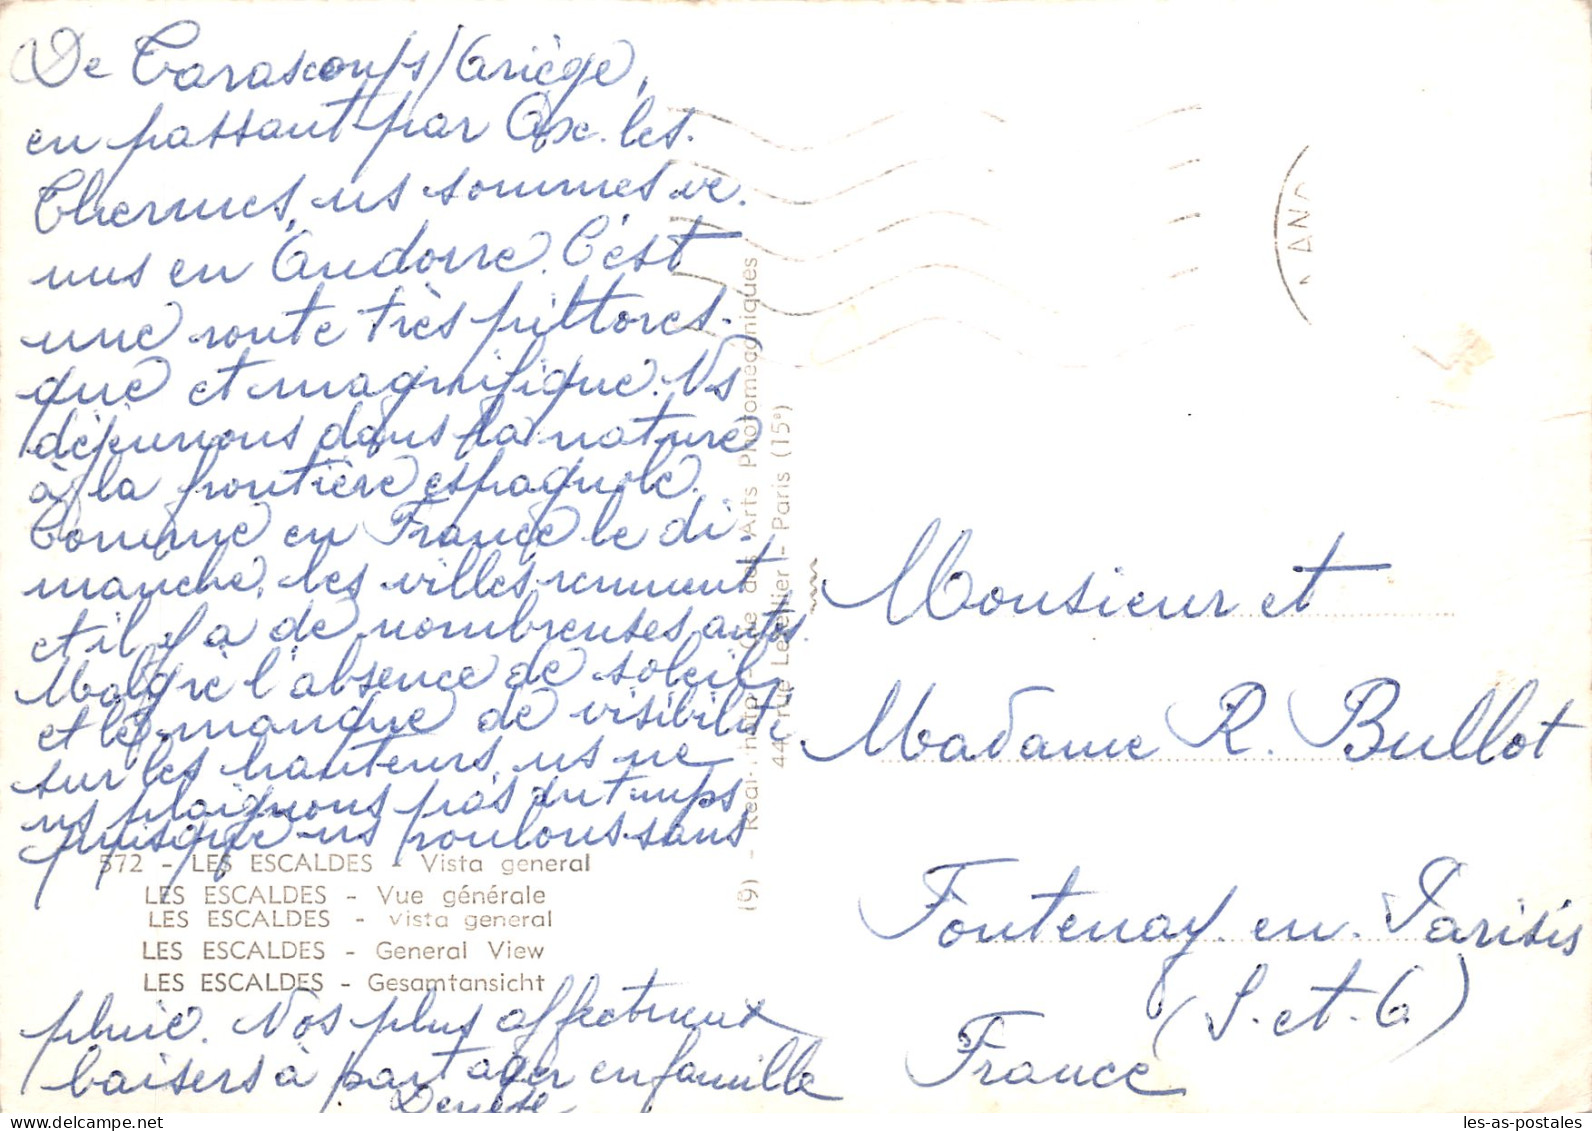 De Tarascon s/Ariège,
en passant par Ax.les.
Thermes, ns sommes ve.
nus en Andorre. C'est
une route très pittores-
que et magnifique. Ns
déjeunons dans la nature
à la frontière espagnole.
Comme en France le di-
manche, les villes remuent
et il y a de nombreuses autos.
Malgré l'absence de soleil,
et le manque de visibilité
sur les hauteurs, ns ne
ns plaignons pas du temps
puisque ns roulons sans
572 - LES ESCALDES - Vista general
LES ESCALDES - Vue générale
LES ESCALDES - Vista general
LES ESCALDES - General View
LES ESCALDES - Gesamtansicht
pluie. Nos plus affectueux
baisers à partager en famille
Denise
(9) - Réal. des Arts Photomécaniques
44, rue Letellier - Paris (15e)
AND
Monsieur et
Madame R. Bullot
Fontenay.en.Parisis
(S.et.O)
France
les-as-postales.com